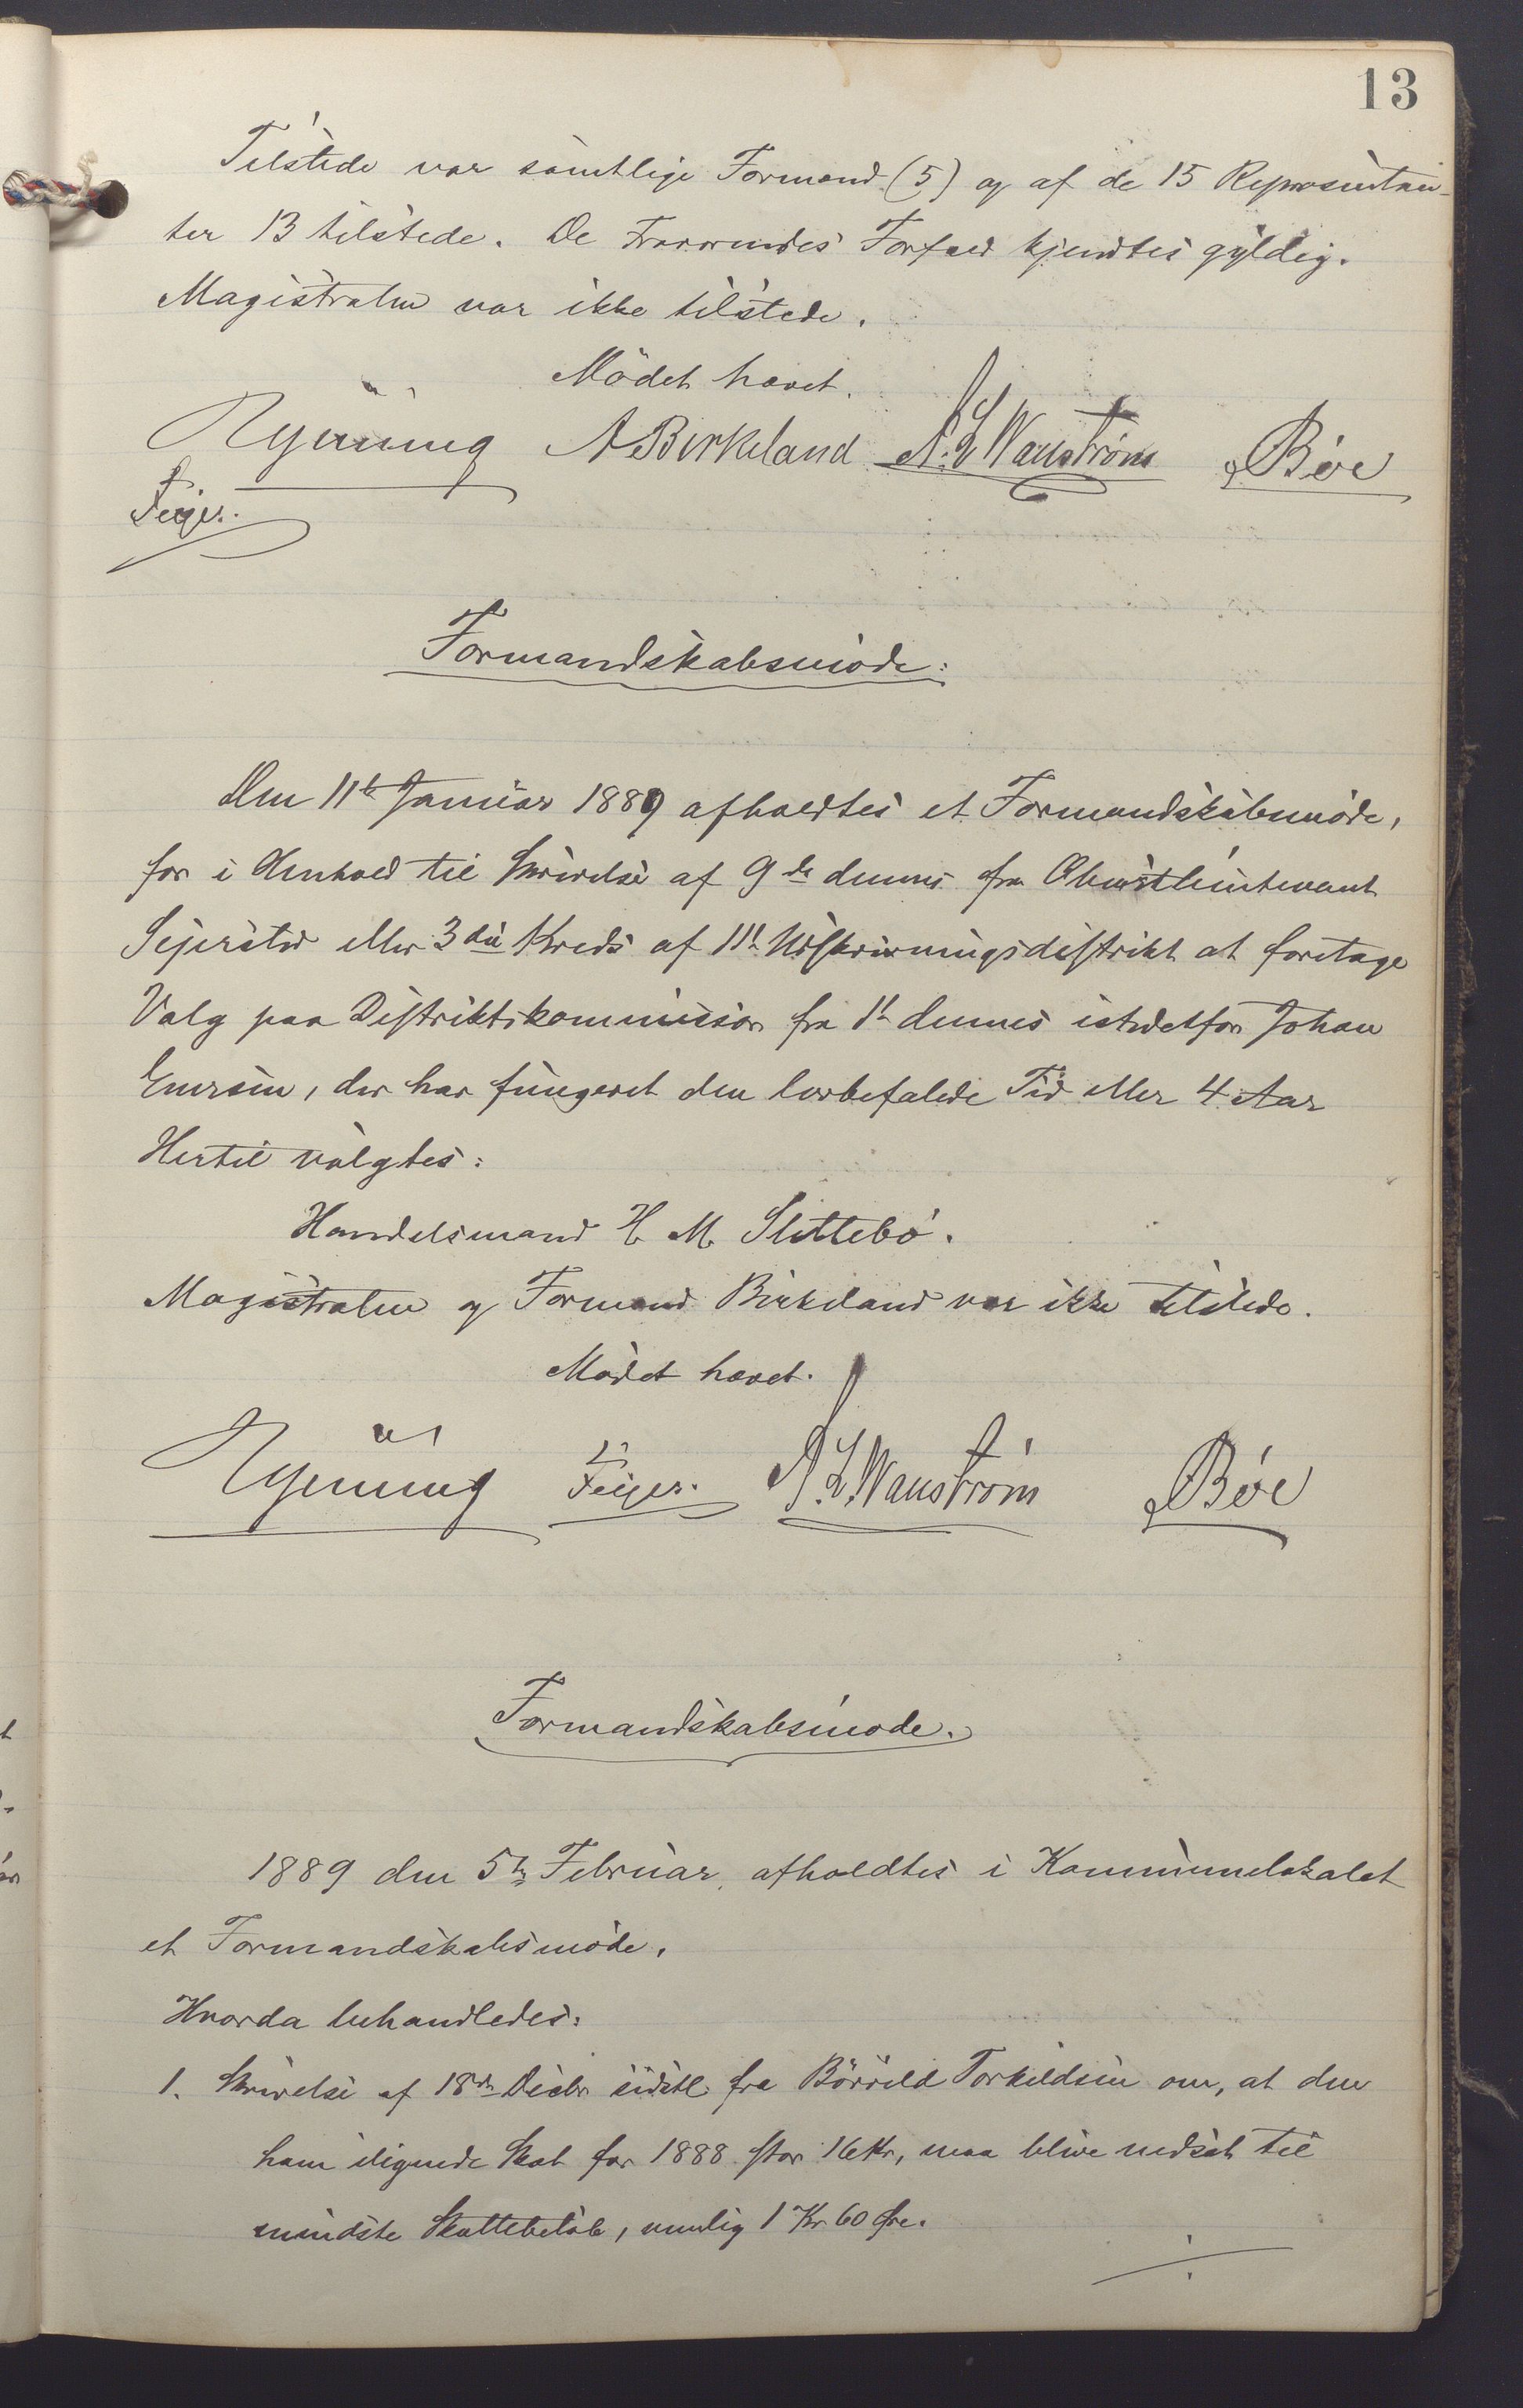 13
Tilstede var samtlige Formænd (5) og af de 15 Repræsentan-
ter 13 tilstede. De Fraværendes Forfald kjendtes gyldig.
Magistraten var ikke tilstede.
Mødet hævet.
A Birkeland A. L Wanstrøm Bøe
Feyer.
Formandskabsmøde:
Den 11te Januar 1889 afholdtes et Formandskabsmøde,
for i Henhold til Skrivelse af 9de dennes fra Oberstleutenant
Sejersted eller 3die Kreds af 11te Udskrivningsdistrikt at foretage
Valg paa Distriktskommissær fra 1ste dennes istedetfor Johan
Emersen, der har fungeret den lovbefalede Tid eller 4 Aar
Hertil valgtes:
Handelsmand H. M. Slettebø.
Magistraten og Formand Birkeland var ikke tilstede.
Mødet hævet.
Feyer. A. L. Wanstrøm Bøe
Formandskabsmøde.
1889 den 5te Februar, afholdtes i Kommunelokalet
et Formandskabsmøde.
Hvorda behandledes:
1. Skrivelse af 18de Decbr sidstl. fra Børrild Torkildsen om, at den
ham ilignede Skat for 1888 stor 16 Kr, maa blive nedsat til
mindste Skattebeløb, nemlig 1 Kr 60 Øre.